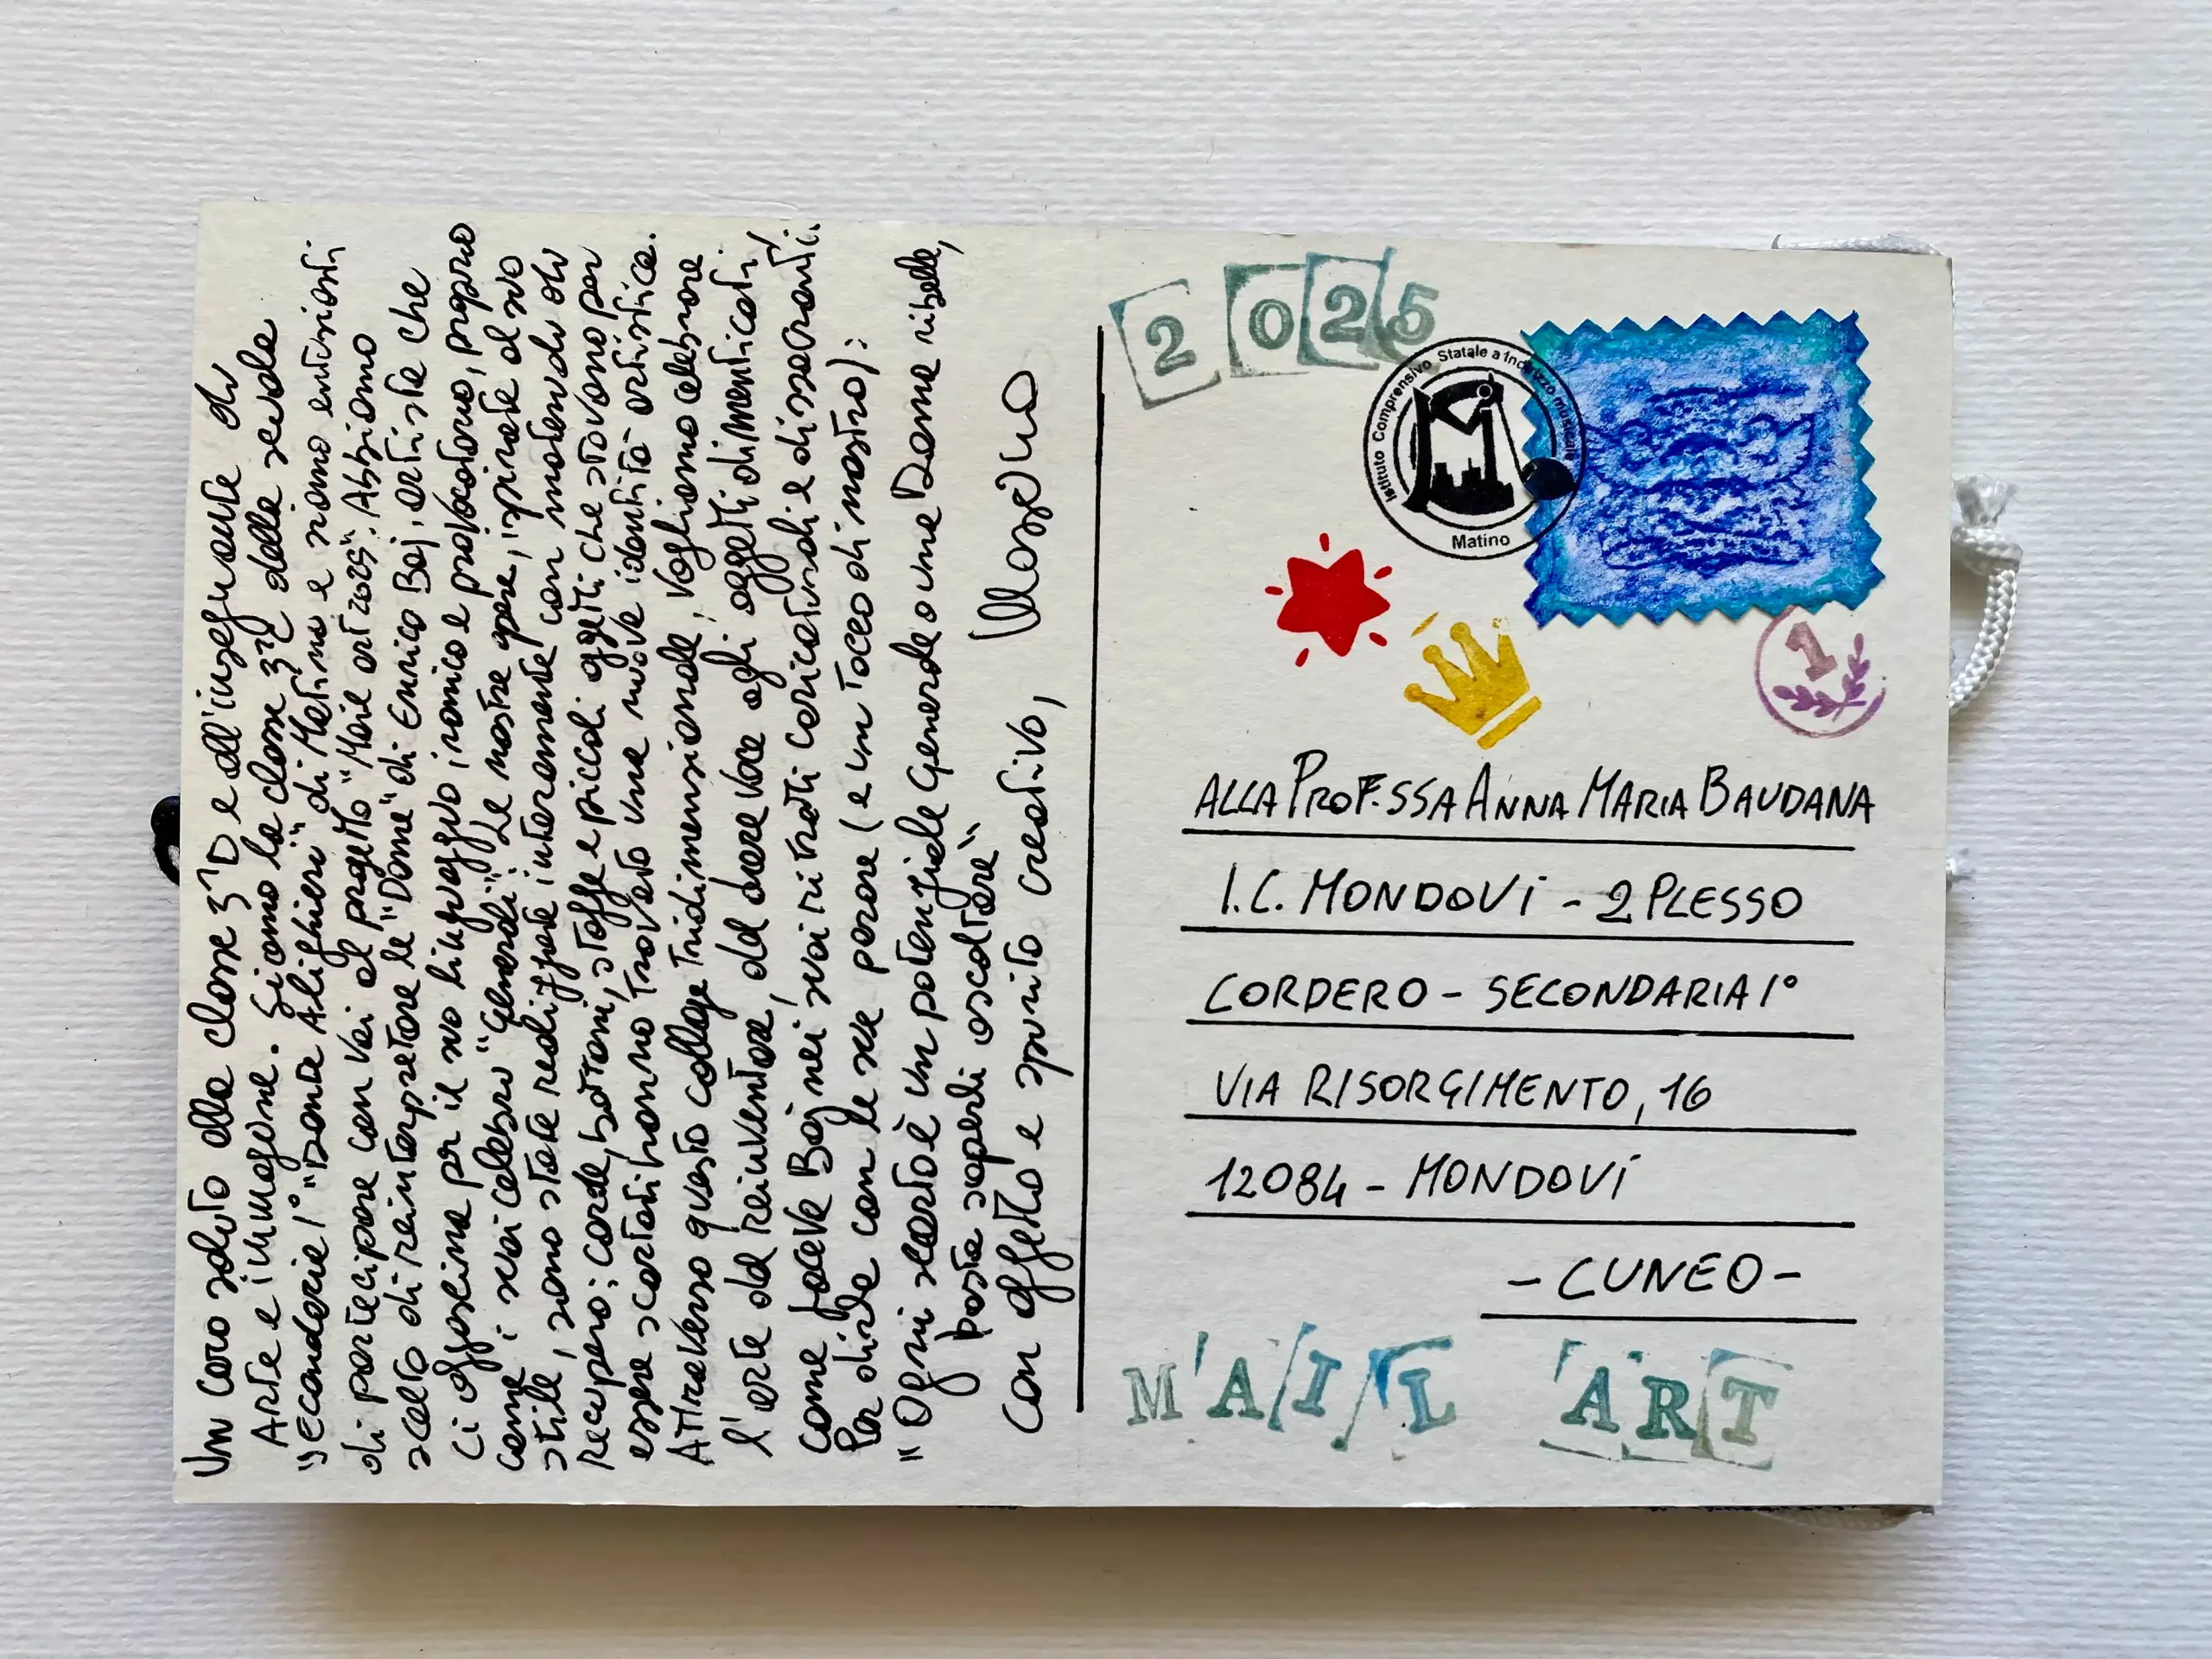 Un caro saluto alla classe 3ªD e all'insegnante di
Arte e immagine. Siamo la classe 3ªC della scuola
Secondaria 1° "Dante Alighieri" di Matino e siamo entusiasti
di partecipare con voi al progetto "Mail art 2025". Abbiamo
scelto di reinterpretare le "Dame" di Enrico Baj, artista che
ci affascina per il suo linguaggio ironico e provocatorio, proprio
come i suoi celebri "Generali". Le nostre opere, ispirate al suo
stile, sono state realizzate interamente con materiali di
recupero: corde, bottoni, stoffe e piccoli oggetti che stavano per
essere scartati hanno trovato una nuova identità artistica.
Attraverso questo collage tridimensionale, vogliamo celebrare
l'arte del reinventare, del dare voce agli oggetti dimenticati,
come faceva Baj nei suoi ritratti caricaturali e dissacranti.
Per dirla con le sue parole (e un tocco di nostro):
"Ogni scarto è un potenziale Generale o una Dama ribelle,
basta saperli ascoltare"
Con affetto e spirito creativo,
2025
Istituto Comprensivo Statale a Indirizzo musicale
Matino
1
ALLA PROF.SSA ANNA MARIA BAUDANA
I.C. MONDOVì - 2 PLESSO
CORDERO - SECONDARIA 1°
VIA RISORGIMENTO, 16
12084 - MONDOVì
- CUNEO -
MAIL ART